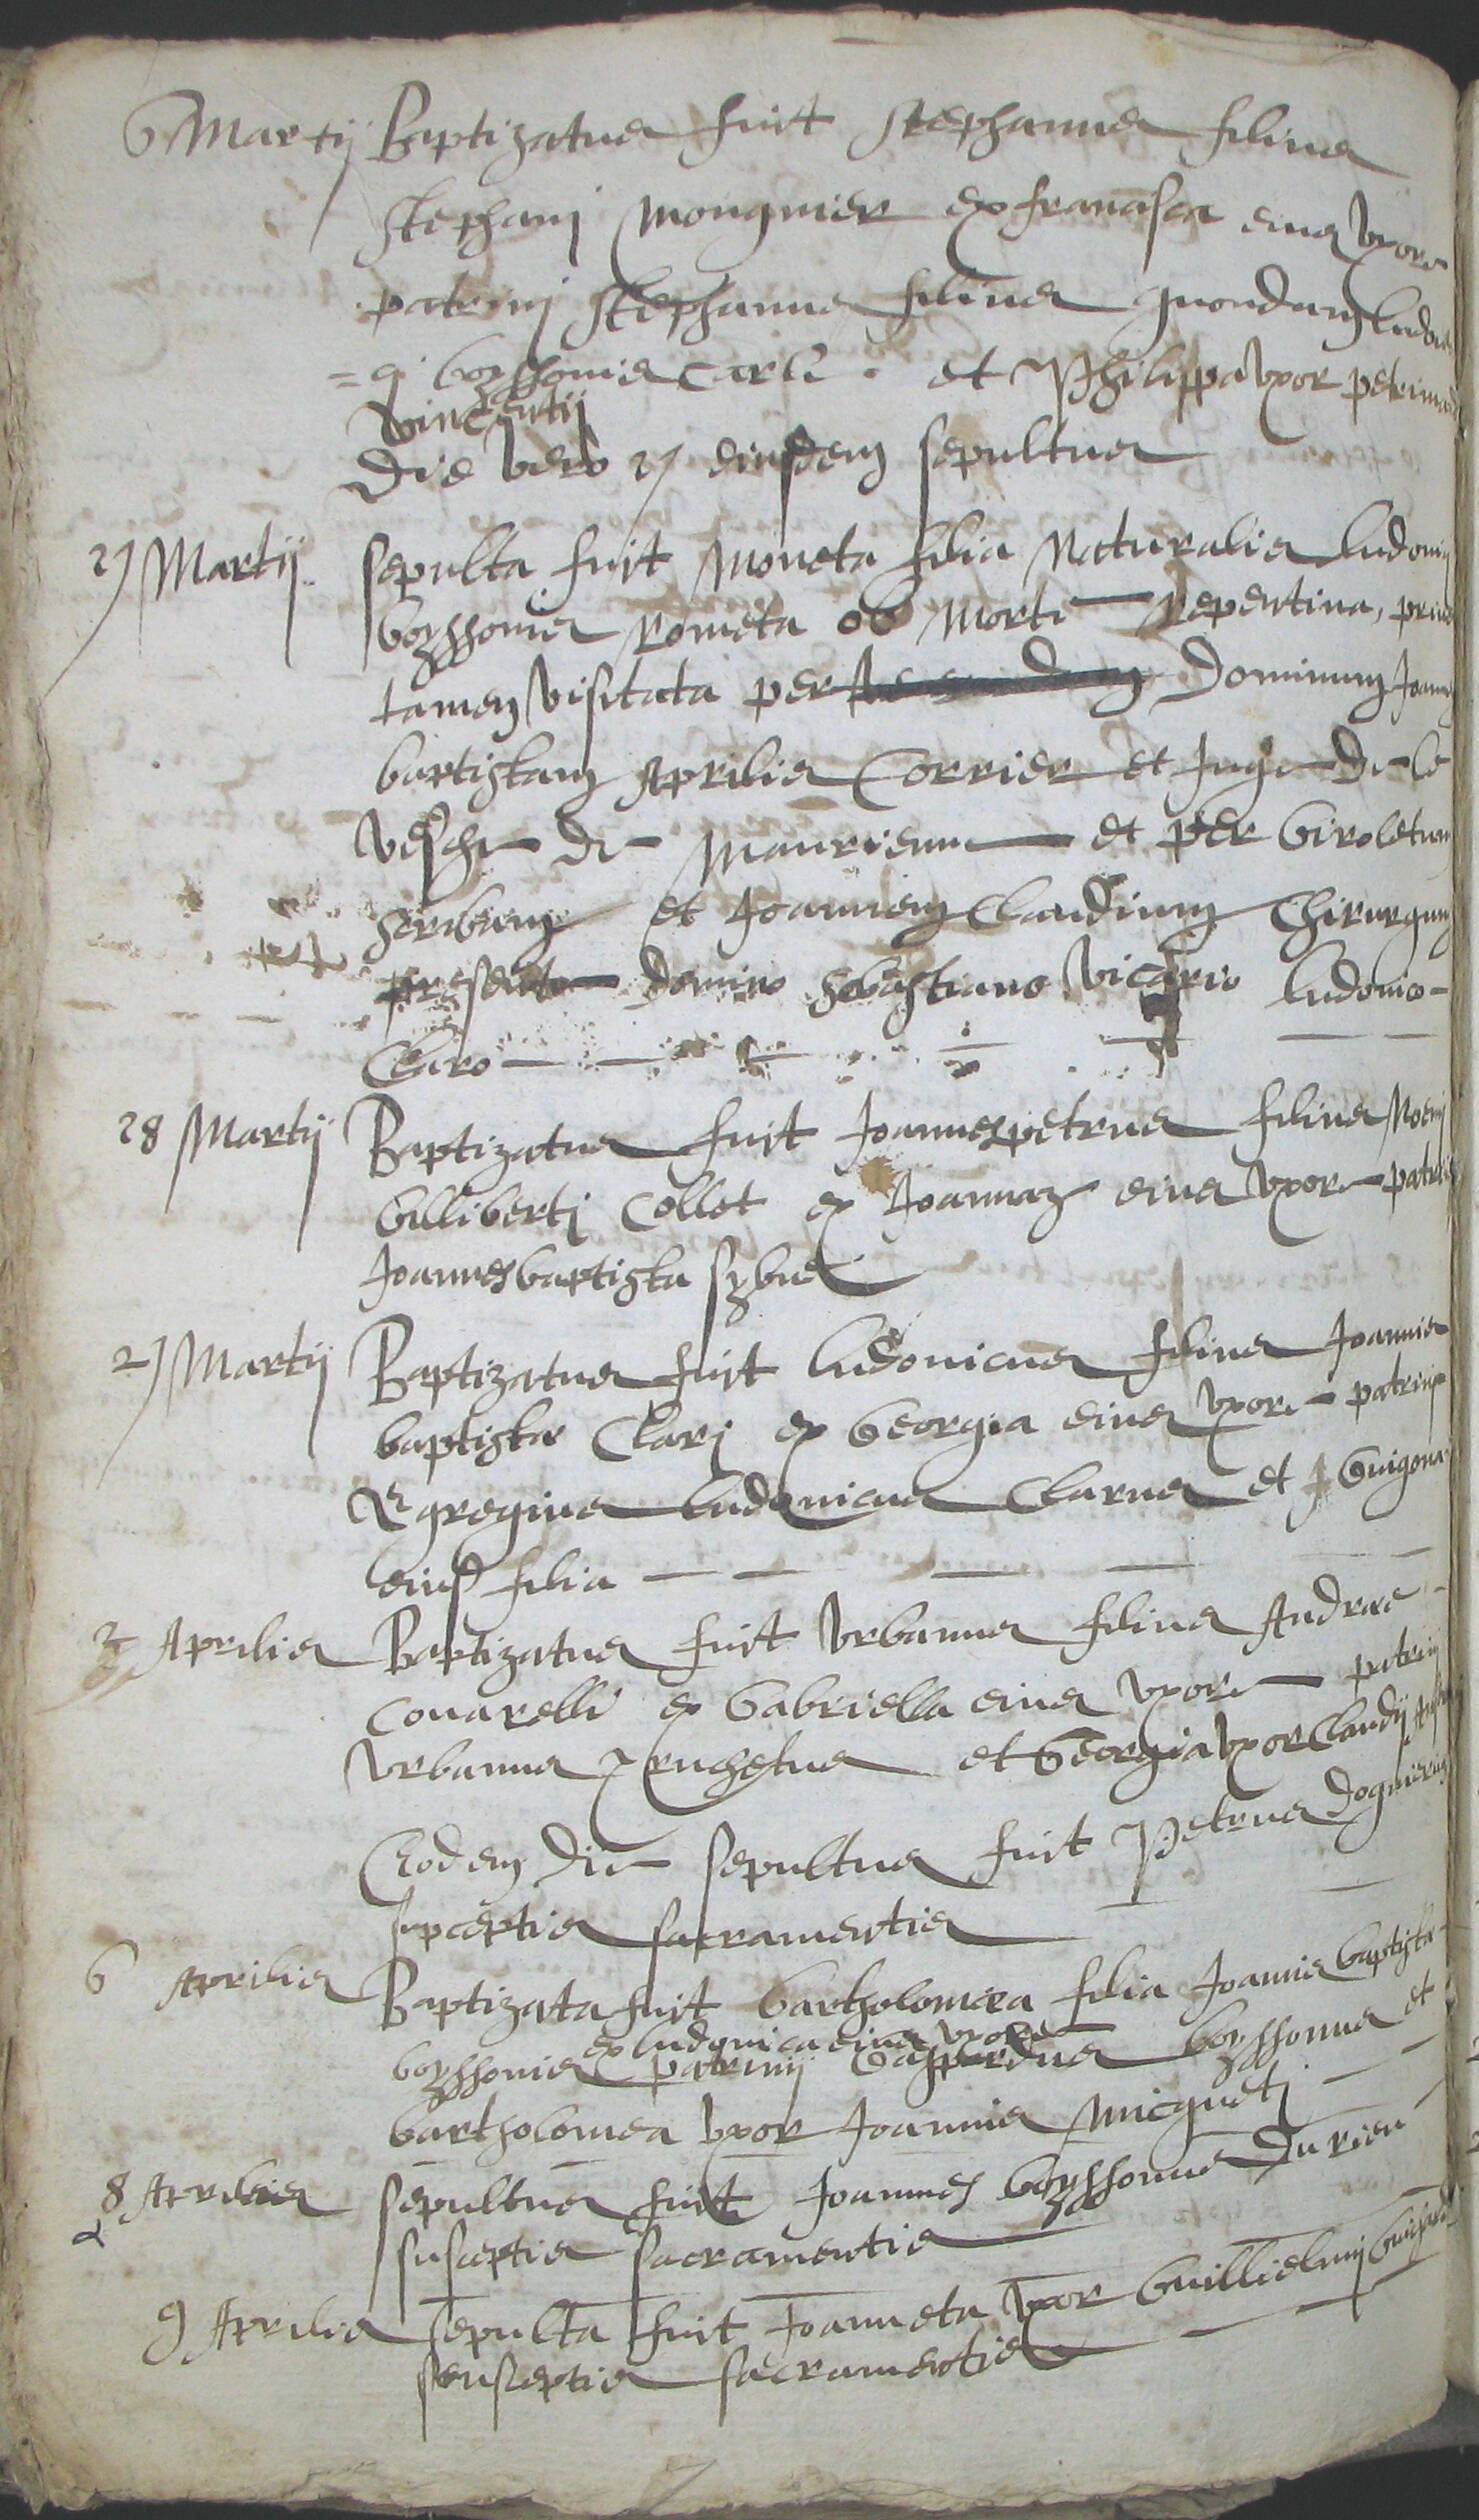 6 Martij Baptizatus fuit stephanus filius
stephanj mongnier ex francisca eius vxore
patrinj stephanus filius quondam ludoui
=cj boyssonis carli. et Philippa vxor petri
vincentij
Die vero 27 eiusdem sepultus
27 Martij sepulta fuit Moneta filia Naturalis ludouicj
boyssonis Rometa ob Morte Repentina, prius
tamen visitata per Dominum Joannem
baptistam Aprilis Corrier et Juge de le
vesche de Maurienne et per Giroletum
scribam et Joannem Claudium Chirurgum
presente domino sebastiano vicario ludouico
Claro
28 Martij Baptizatus fuit Joannespetrus filius Noemj
Gilliberti Collet ex Joannaz eius vxore patrin
Joannesbaptista sybue
29 Martij Baptizatus fuit ludouicus filius Joannis
baptistae Clarj ex Georgia eius vxore patrinj
Egregius ludouicus Clarus et Guigona
eius filia
3 Aprilis Baptizatus fuit vrbanus filius Andreae
couarelli ex Gabriella eius vxore patrinj
vrbanus truchetus et Georgia vxor Claudij
Eodem die sepultus fuit Petrus dognierus
susceptis sacramentis
6 Aprilis Baptizata fuit bartholomea filia Joannis baptistae
ex ludouica eius vxore
boyssonis patrinij Gaspardus boyssonus et
bartholomea vxor Joannis Micquetj
8 Aprilis sepultus fuit Joannes boyssonus Durieu
susceptis sacramentis
9 Aprilis sepulta fuit Joanneta vxor Guillielmj
susceptis sacramentis